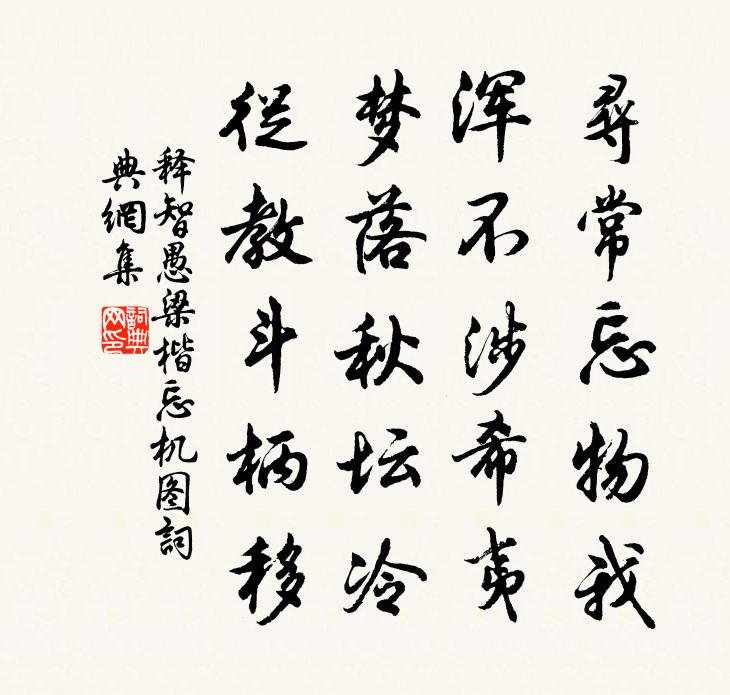 尋常忘物我
浑不涉希夷
梦落秋坛冷
從教斗柄移
释智愚梁楷忘机图詞
典網集
詞典
网印